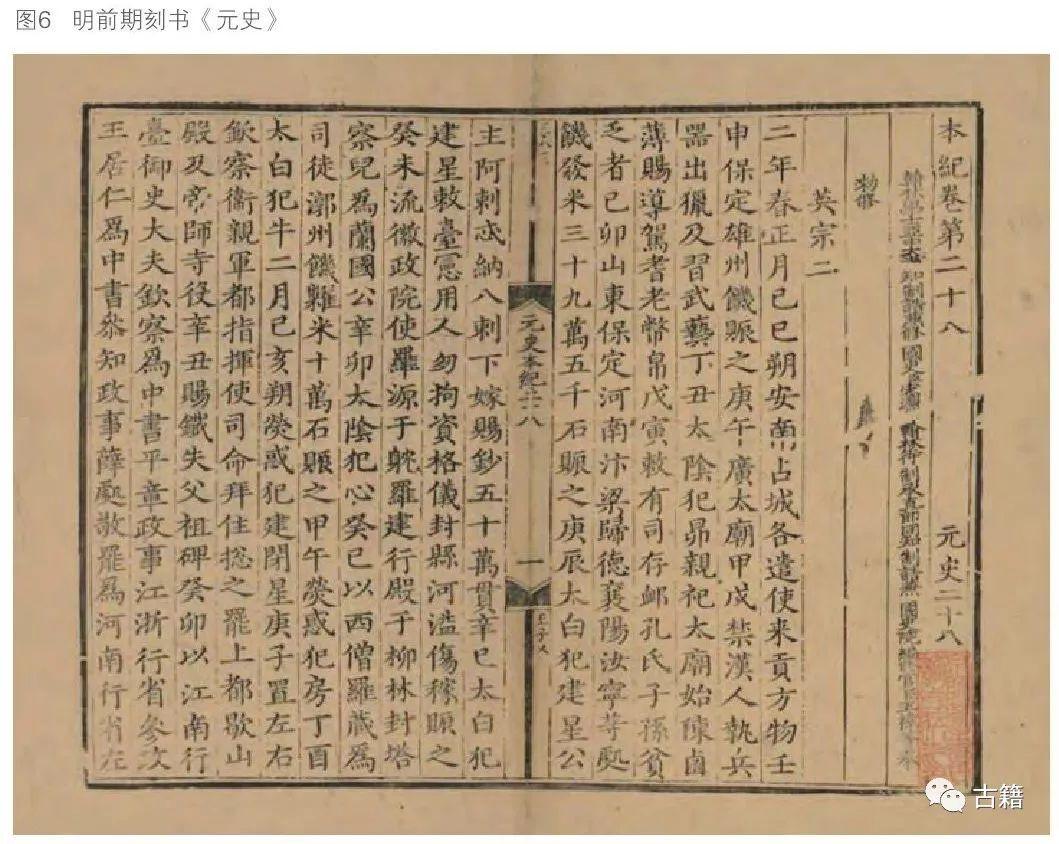 图6 明前期刻书《元史》
本紀卷第二十八 元史二十八
勑修
英宗二
二年春正月己巳朔安南占城各遣使來貢方物壬
申保定雄州饑賑之庚午廣太廟甲戌禁漢人執兵
器出獵及習武藝丁丑太陰犯昴親祀太廟始陳鹵
薄賜導駕耆老幣帛戊寅敕有司存卹孔氏子孫貧
乏者己卯山東保定河南汴梁歸德襄陽汝寧等處
饑發米三十九萬五千石賑之庚辰太白犯建星公
元史本紀二十八 一
主阿剌忒納八剌下嫁賜鈔五十萬貫辛巳太白犯
建星敕臺憲用人勿拘資格儀封縣河溢傷稼賑之
癸未流徽政院使羅源于躭羅建行殿于柳林封塔
察兒爲蘭國公辛卯太陰犯心癸巳以西僧羅藏爲
司徒漷州饑糶米十萬石賑之甲午熒惑犯房丁酉
太白犯牛二月己亥朔熒惑犯建閉星庚子置左右
欽察衞親軍都指揮使司命拜住總之罷上都歇山
殿及帝師寺役辛丑賜鐵失父祖碑癸卯以江南行
臺御史大夫欽察爲中書平章政事江浙行省參政
王居仁爲中書叅知政事薛處敬罷爲河南行省左
古籍